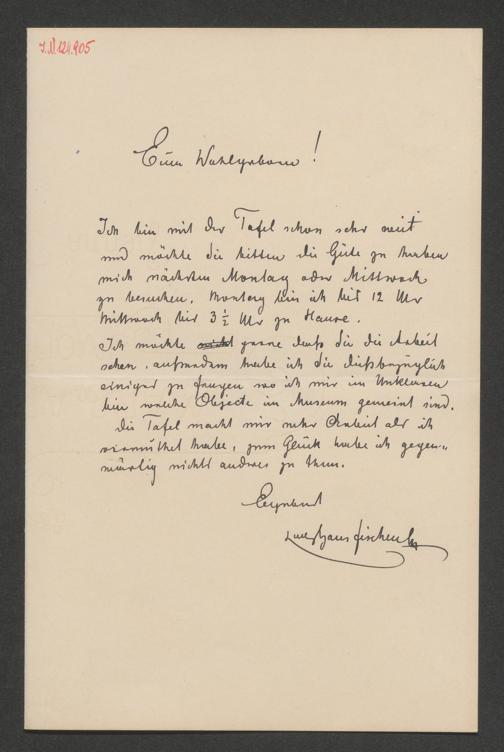 I.N.124.905
Euer Wohlgeboren!
Ich bin mit der Tafel schon sehr weit
und möchte Sie bitten die Güte zu haben
mich nächsten Montag oder Mittwoch
zu besuchen. Montag bin ich bis 12 Uhr
Mittwoch bis 3 ½ Uhr zu Hause.
Ich möchte gerne daß Sie die Arbeit
sehen, außerdem habe ich Sie dießbezüglich
einiges zu fragen wo ich mir im Unklaren
bin welche Objecte im Museum gemeint sind.
Die Tafel macht mir mehr Arbeit als ich
vermuthet habe, zum Glück habe ich gegen-
wärtig nichts anderes zu thun.
Ergebenst
Ludw Hans Fischer